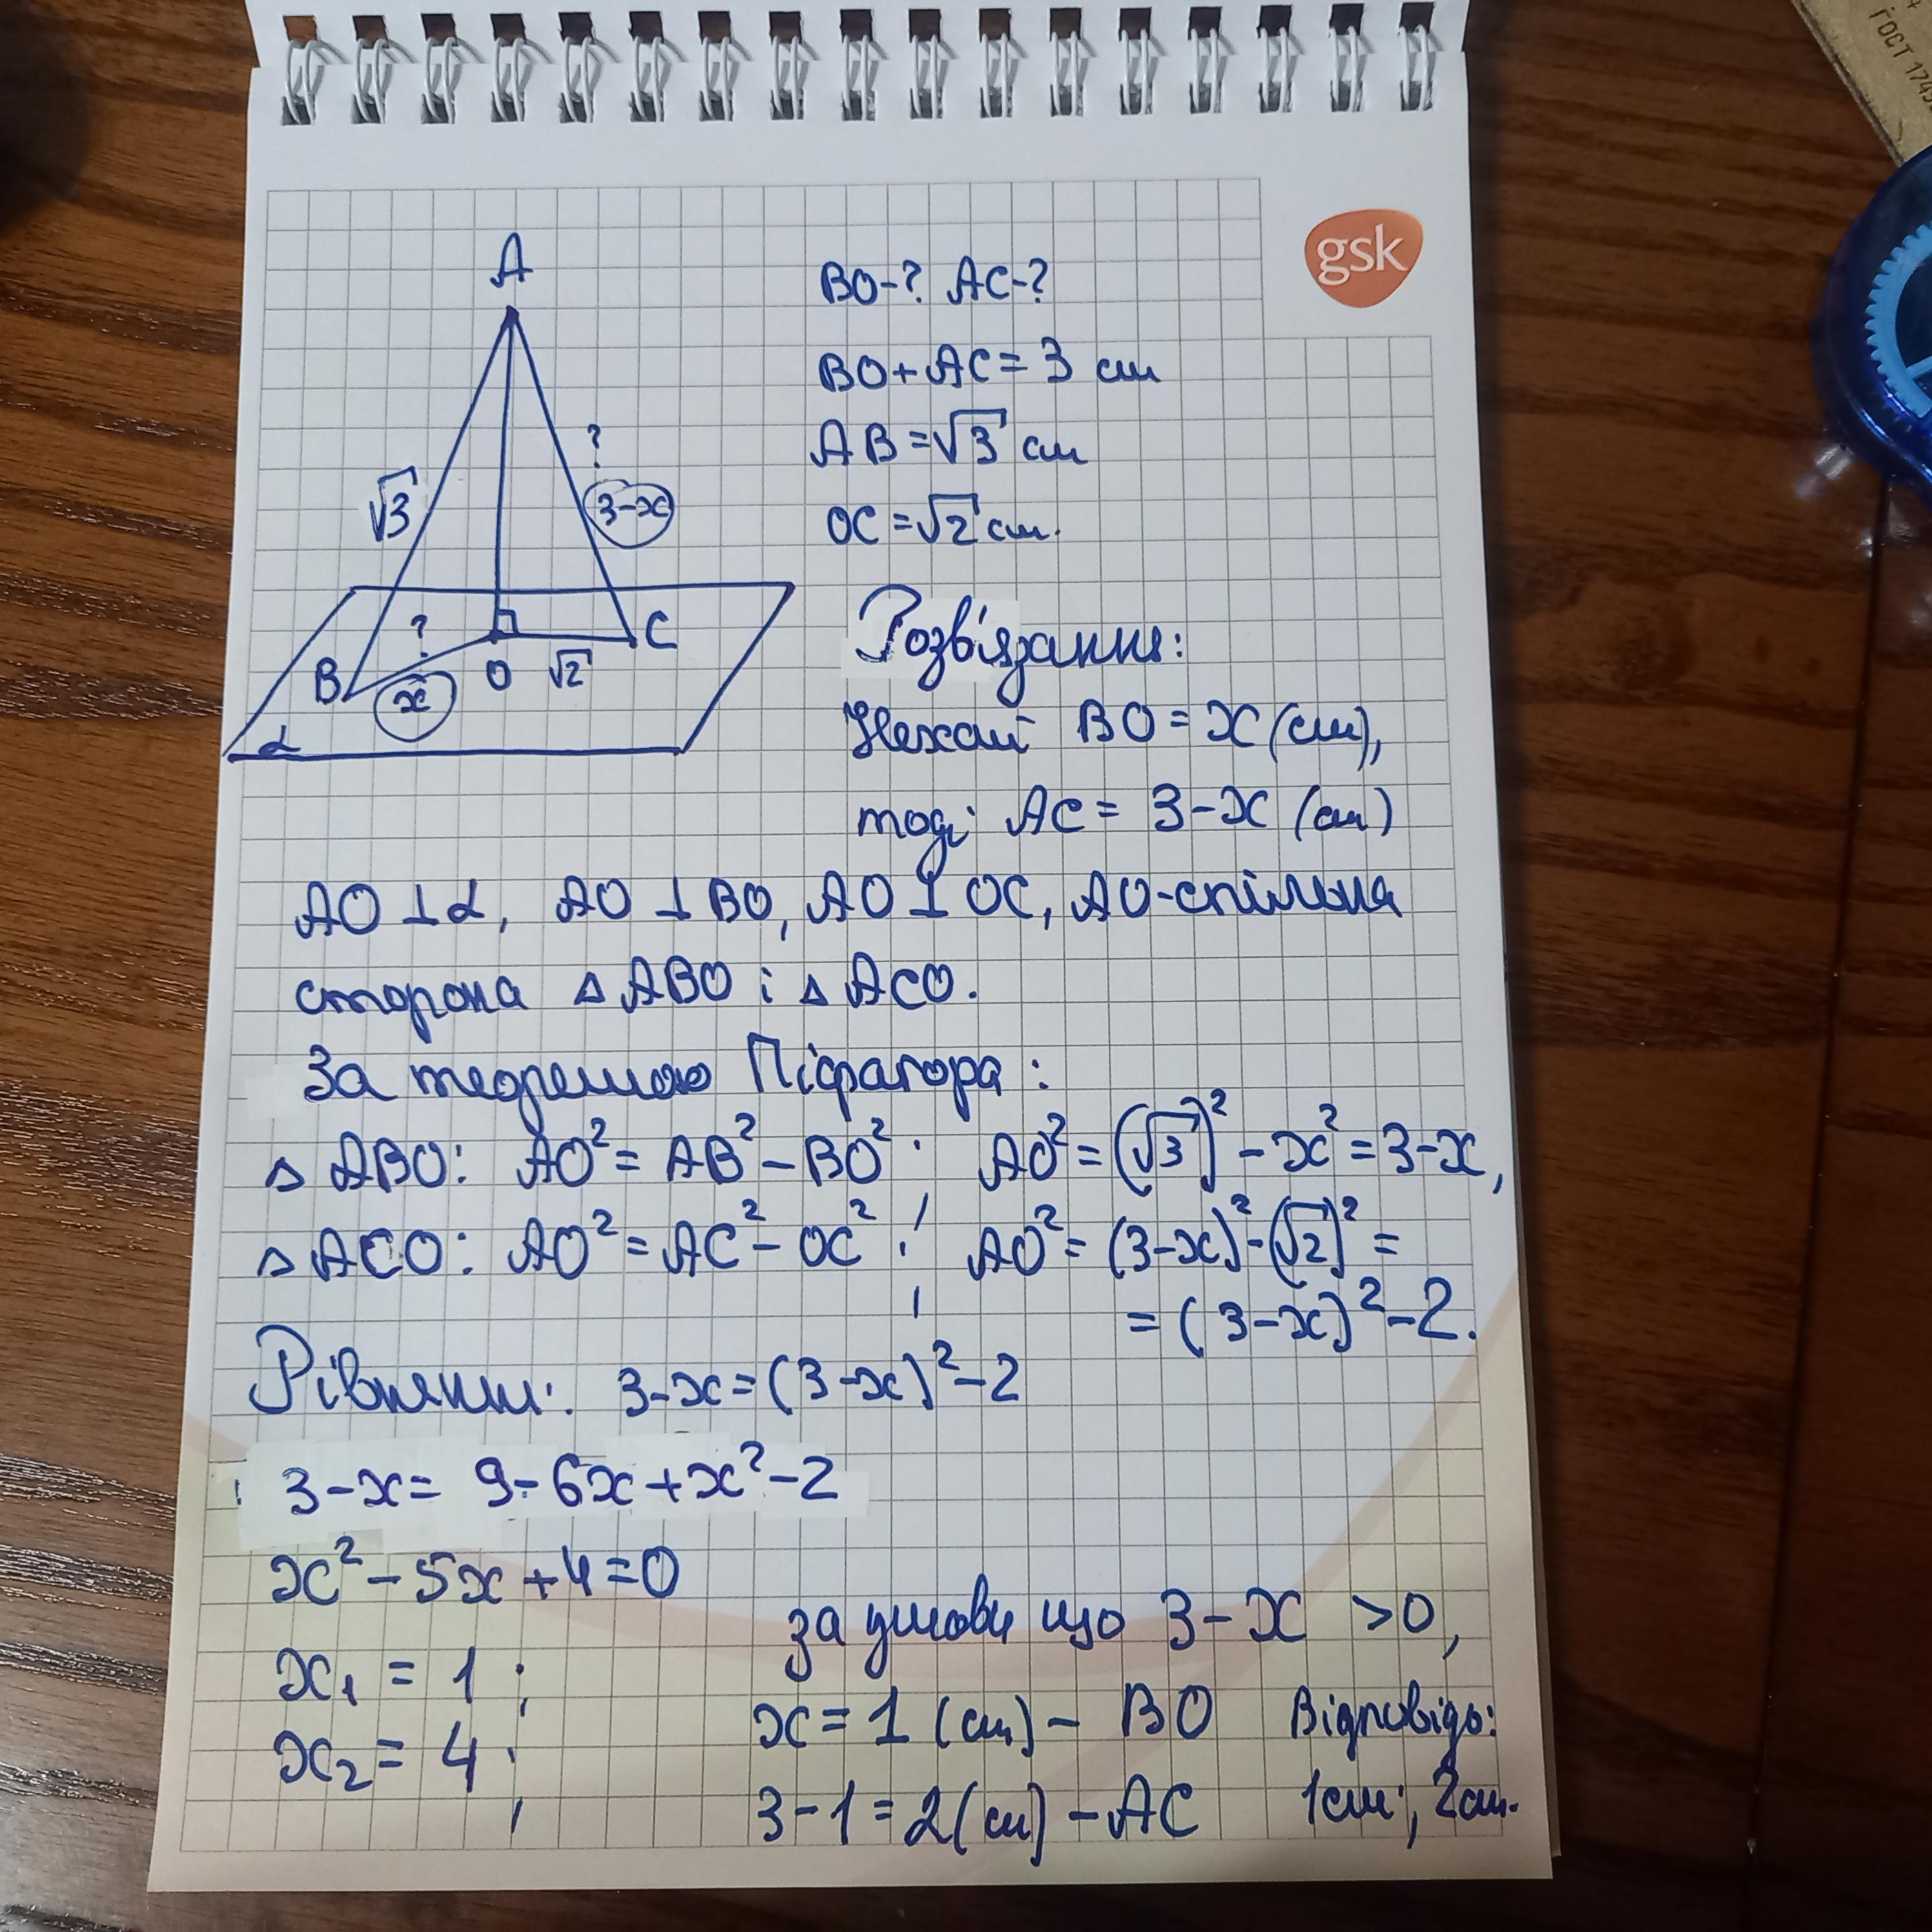 ГОСТ 174
gsk
A
BO-? AC-?
BO+AC=3 см
AB=√3 см
OC=√2 см.
√3
?
3-x
?
B
x
O
√2
C
α
Розв'язання:
Нехай BO=x(см),
тоді AC=3-x (см)
AO⊥α, AO⊥BO, AO⊥OC, AO-спільна
сторона △ABO і △ACO.
За теоремою Піфагора:
△ABO: AO²=AB²-BO²; AO²=(√3)²-x²=3-x,
△ACO: AO²=AC²-OC²; AO²=(3-x)²-(√2)²=
=(3-x)²-2.
Рівняння: 3-x=(3-x)²-2
3-x=9-6x+x²-2
x²-5x+4=0
x₁=1;
x₂=4;
за умови що 3-x>0,
x=1(см)-BO
3-1=2(см)-AC
Відповідь:
1см; 2см.